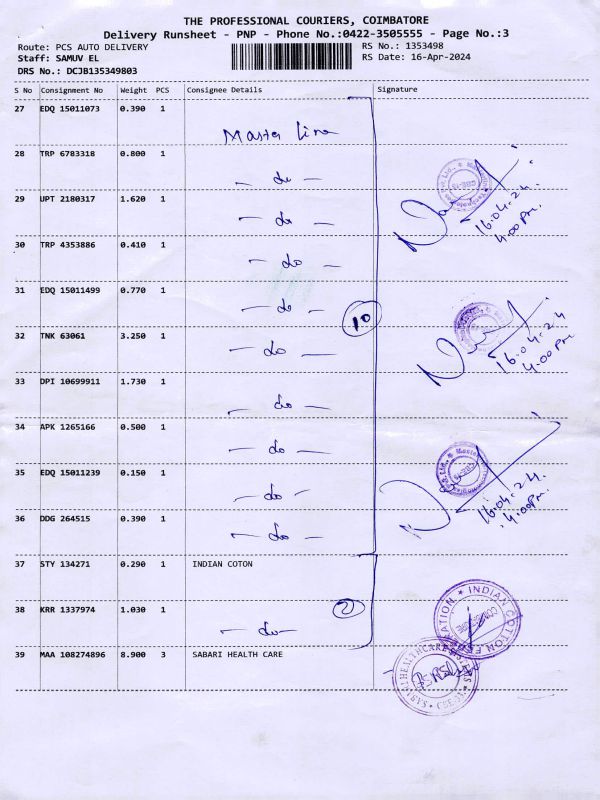 THE PROFESSIONAL COURIERS, COIMBATORE
Delivery Runsheet - PNP - Phone No.:0422-3505555 - Page No.:3
Route: PCS AUTO DELIVERY
RS No.: 1353498
Staff: SAMUV EL
RS Date: 16-Apr-2024
DRS No.: DCJB135349803
S No Consignment No Weight PCS Consignee Details Signature
27 EDQ 15011073 0.390 1
Master Line
28 TRP 6783318 0.800 1
- do -
29 UPT 2180317 1.620 1
- do -
16.04.24
4.00pm.
30 TRP 4353886 0.410 1
- do -
31 EDQ 15011499 0.770 1
- do -
10
32 TNK 63061 3.250 1
- do -
16.04.24
4.00pm
33 DPI 10699911 1.730 1
- do -
34 APK 1265166 0.500 1
- do -
35 EDQ 15011239 0.150 1
- do -
16.04.24.
4.00pm.
36 DDG 264515 0.390 1
- do -
37 STY 134271 0.290 1 INDIAN COTON
38 KRR 1337974 1.030 1
- do -
2
INDIAN COTTON FEDERATION
COIMBATORE
39 MAA 108274896 8.900 3 SABARI HEALTH CARE